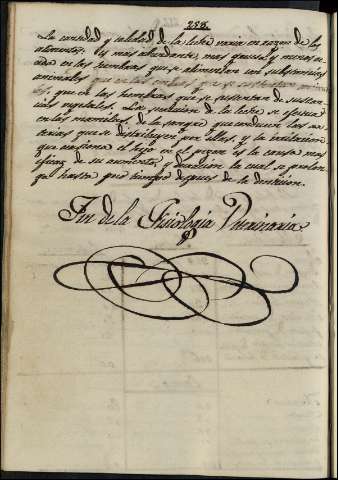 258.
La cantidad y calidad de la leche varia en razon de los
alimentos: Es mas abundante, mas gruesa y menos
en las hembras que se alimentan con substancias
animales
que en las hembras que se sustentan de sustan-
cias vegetales. La secrecion de la leche se efectua
en las mamilas, de la porque conducen las ma-
terias que se distribuyen por ellas, y la irritacion
que ocasiona el feto en el parece es la causa mas
eficaz de su aumento, y duracion la cual se prolon-
ga hasta poco tiempo despues de la denticion.
Fin de la Fisiologia Veterinaria